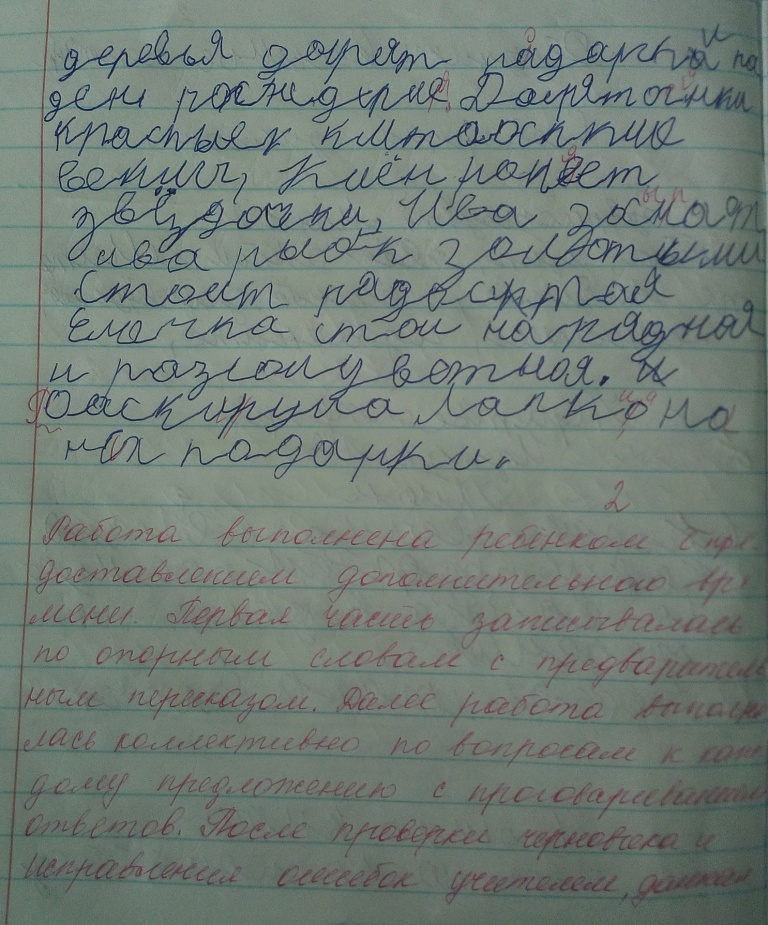 деревья дорят падарки на
ден рождения. Дарят
красные
Клён
звёздочки, Ива
ива рыбок золотыми
стоит радосртая
Елочка стои нарядная
и разнолуветная. и
лапко на
них падарки.
2
Работа выполнена ребёнком с пре-
доставлением дополнительного вре
мени. Первая часть записывалась
по опорным словам с предваритель
ным пересказом. Далее работа выполня
лась коллективно по вопросам к каж
дому предложению с проговариванием
ответов. После проверки черновика и
исправления ошибок учителем, данная